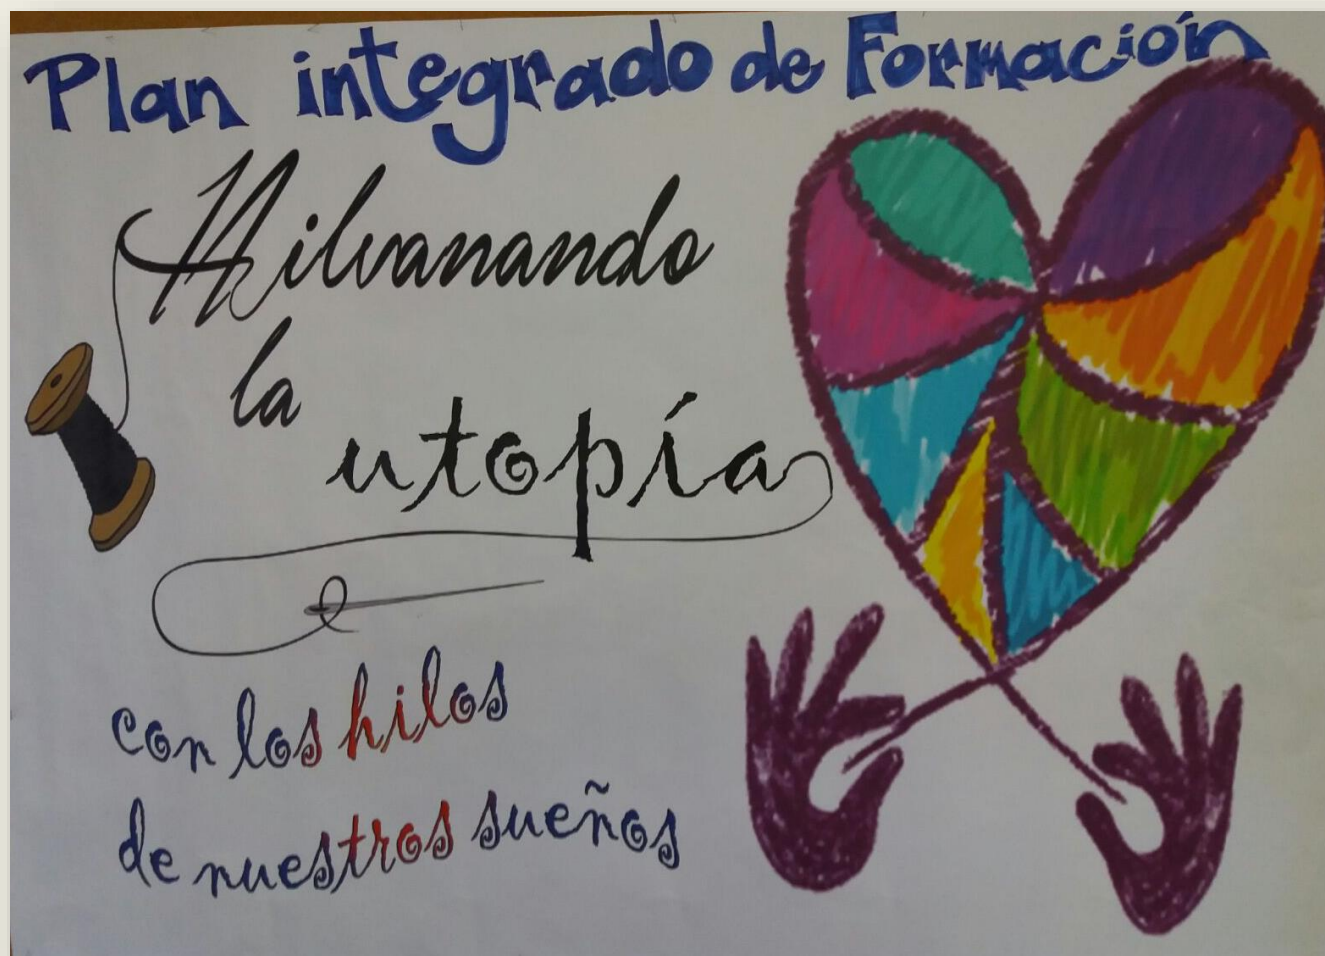 Plan integrado de Formación
Hilvanando
la
utopía
con los hilos
de nuestros sueños